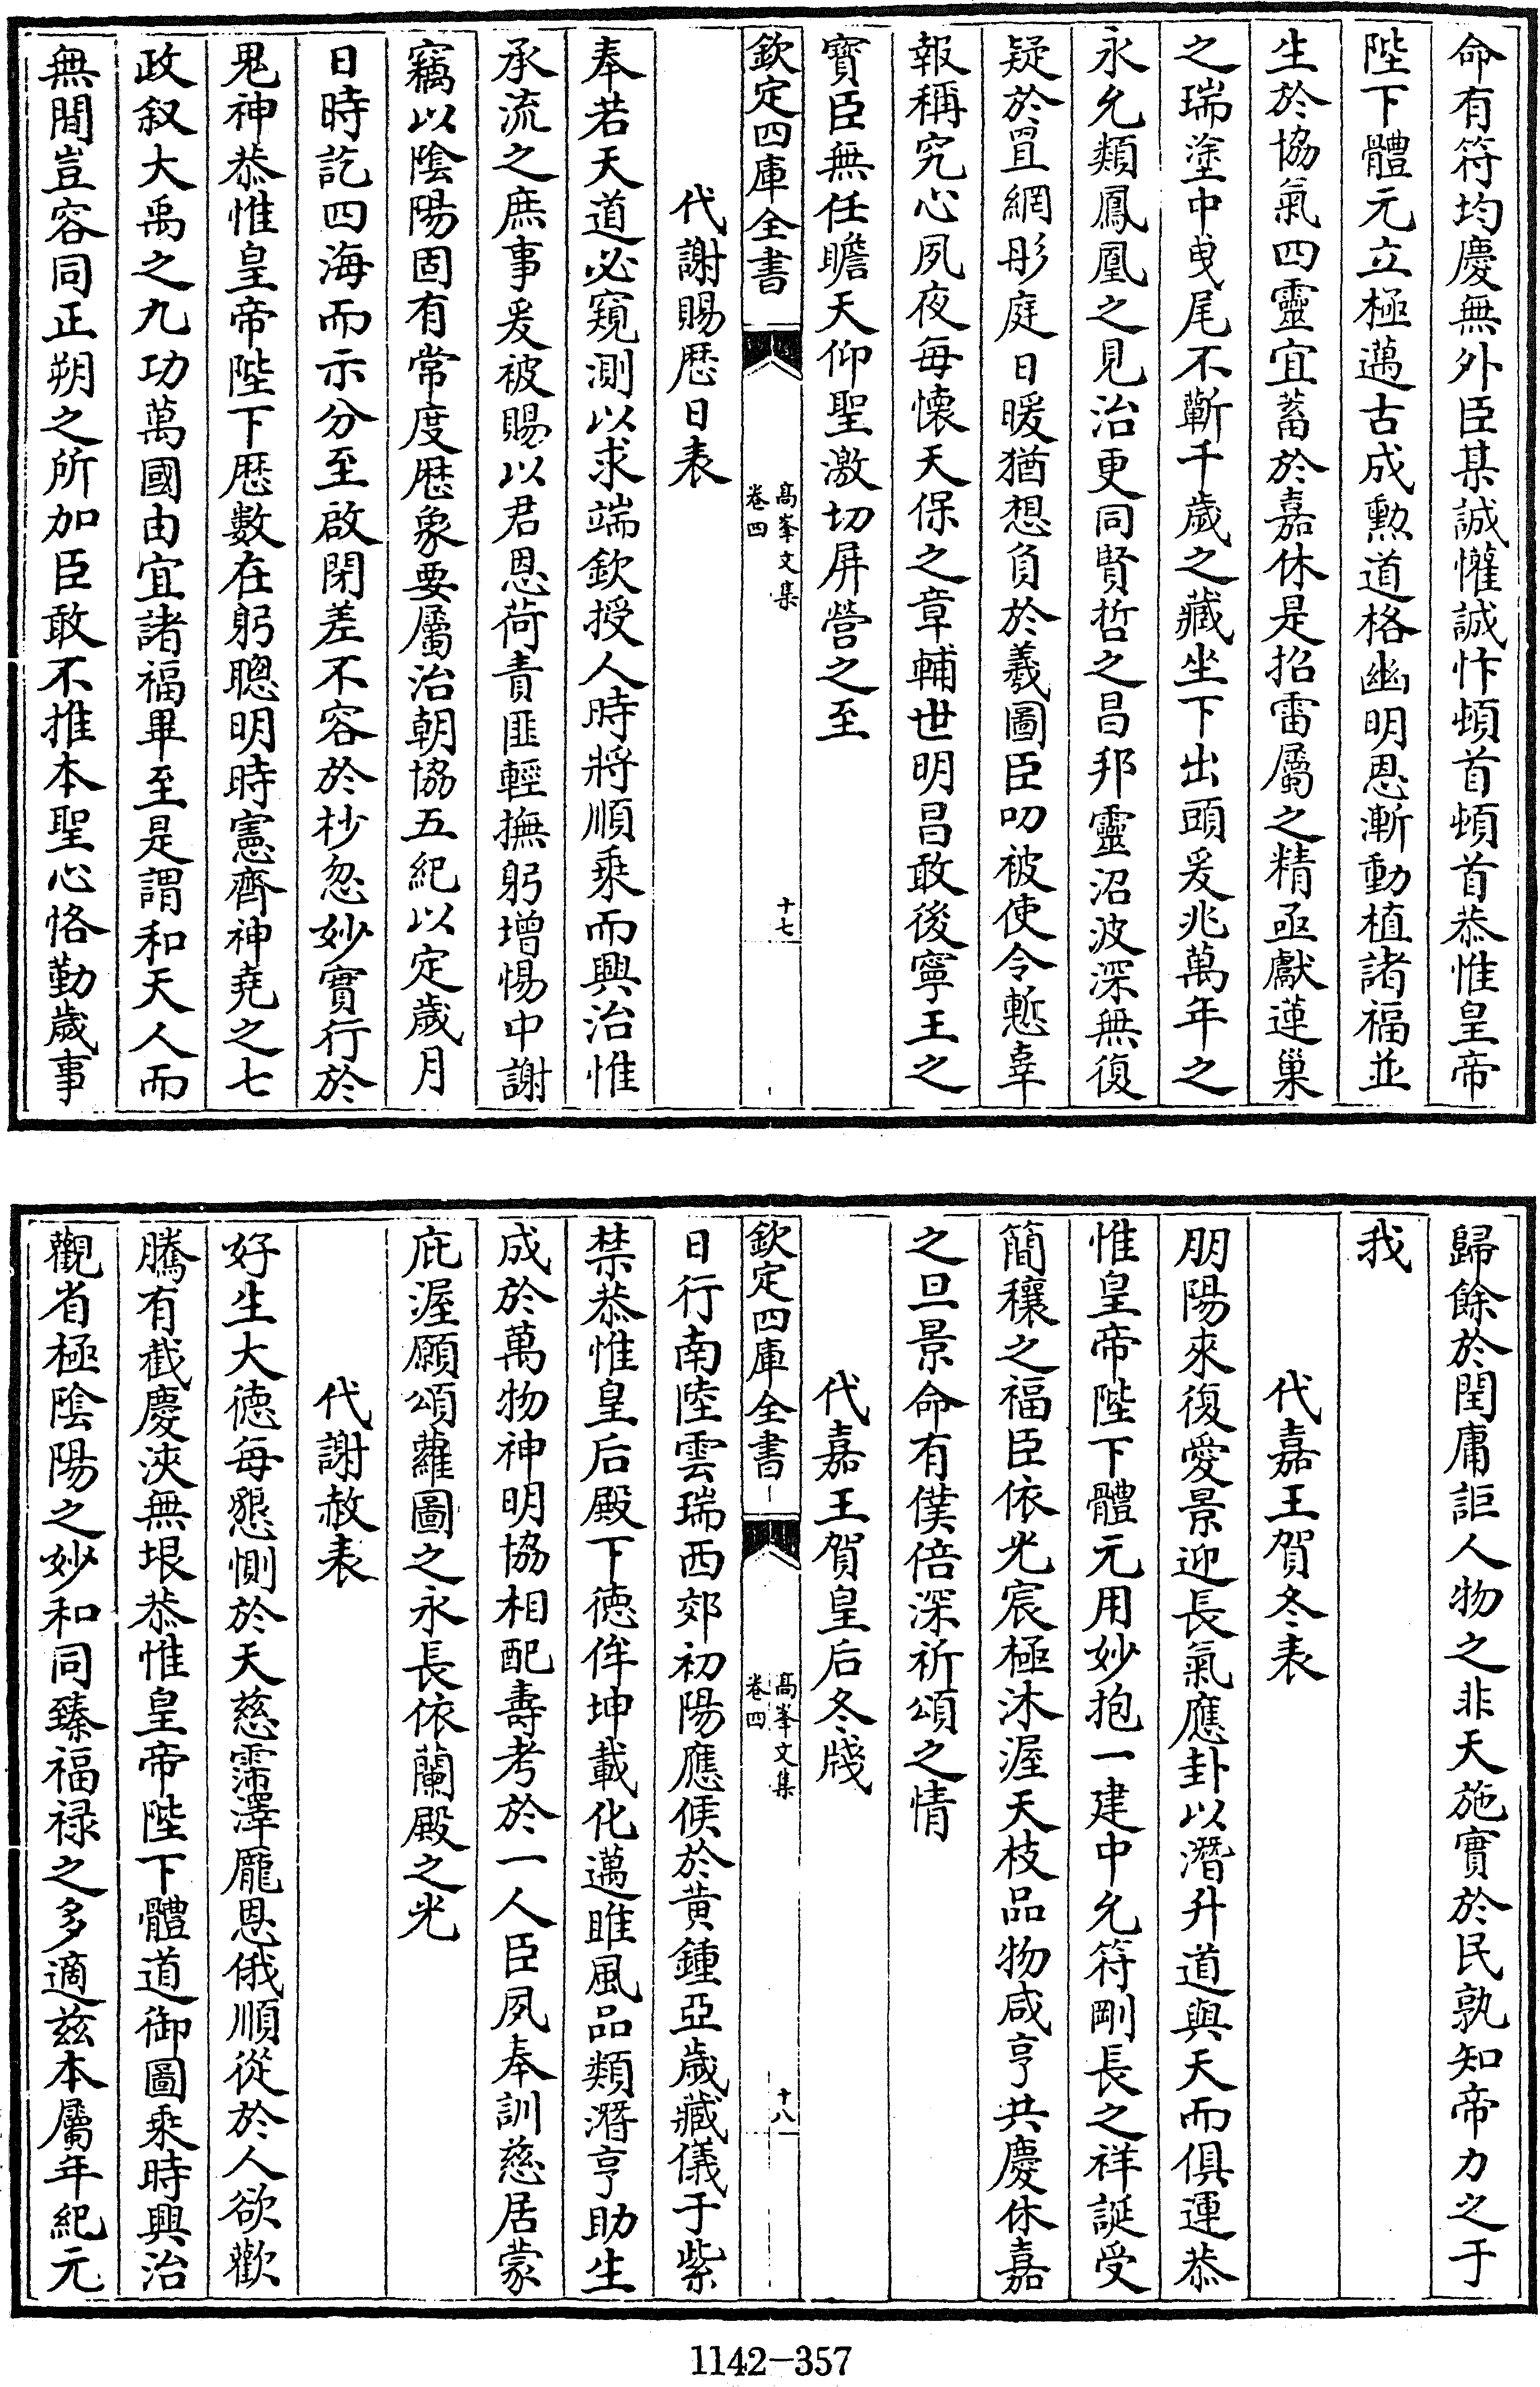 命有符均慶無外臣某誠懽誠忭頓首頓首恭惟皇帝
陛下體元立極邁古成勲道格幽明恩漸動植諸福並
生於協氣四靈宜蓄於嘉休是招雷屬之精亟獻蓮巢
之瑞塗中曵尾不蘄千歲之藏坐下出頭爰兆萬年之
永允類鳳凰之見治更同賢哲之昌邦靈沼波深無復
疑於罝網彤庭日暖猶想負於羲圖臣叨被使令慙辜
報稱究心夙夜每懐天保之章輔世明昌敢後寧王之
寳臣無任瞻天仰聖激切屏營之至
欽定四庫全書
高峯文集
卷四
十七
代謝賜厯日表
奉若天道必窺測以求端欽授人時將順乗而興治惟
承流之庶事爰被賜以君恩荷責匪輕撫躬增惕中謝
竊以陰陽固有常度厯象要屬治朝協五紀以定歲月
日時訖四海而示分至啟閉差不容於杪忽妙實行於
鬼神恭惟皇帝陛下厯數在躬聰明時憲齊神堯之七
政叙大禹之九功萬國由宜諸福畢至是謂和天人而
無間豈容同正朔之所加臣敢不推本聖心恪勤歲事
歸餘於閏庸詎人物之非天施實於民孰知帝力之于
我
代嘉王賀冬表
朋陽來復愛景迎長氣應卦以潛升道與天而俱運恭
惟皇帝陛下體元用妙抱一建中允符剛長之祥誕受
簡穰之福臣依光宸極沐渥天枝品物咸亨共慶休嘉
之旦景命有僕倍深祈頌之情
代嘉王賀皇后冬牋
欽定四庫全書
高峯文集
卷四
十八
日行南陸雲瑞西郊初陽應候於黄鍾亞歲藏儀于紫
禁恭惟皇后殿下徳侔坤載化邁雎風品類潛亨助生
成於萬物神明協相配壽考於一人臣夙奉訓慈居蒙
庇渥願頌蘿圖之永長依蘭殿之光
代謝赦表
好生大徳每懇惻於天慈霈澤厖恩俄順從於人欲歡
騰有截慶浹無垠恭惟皇帝陛下體道御圖乗時興治
觀省極陰陽之妙和同臻福禄之多適兹本屬年紀元
1142-357